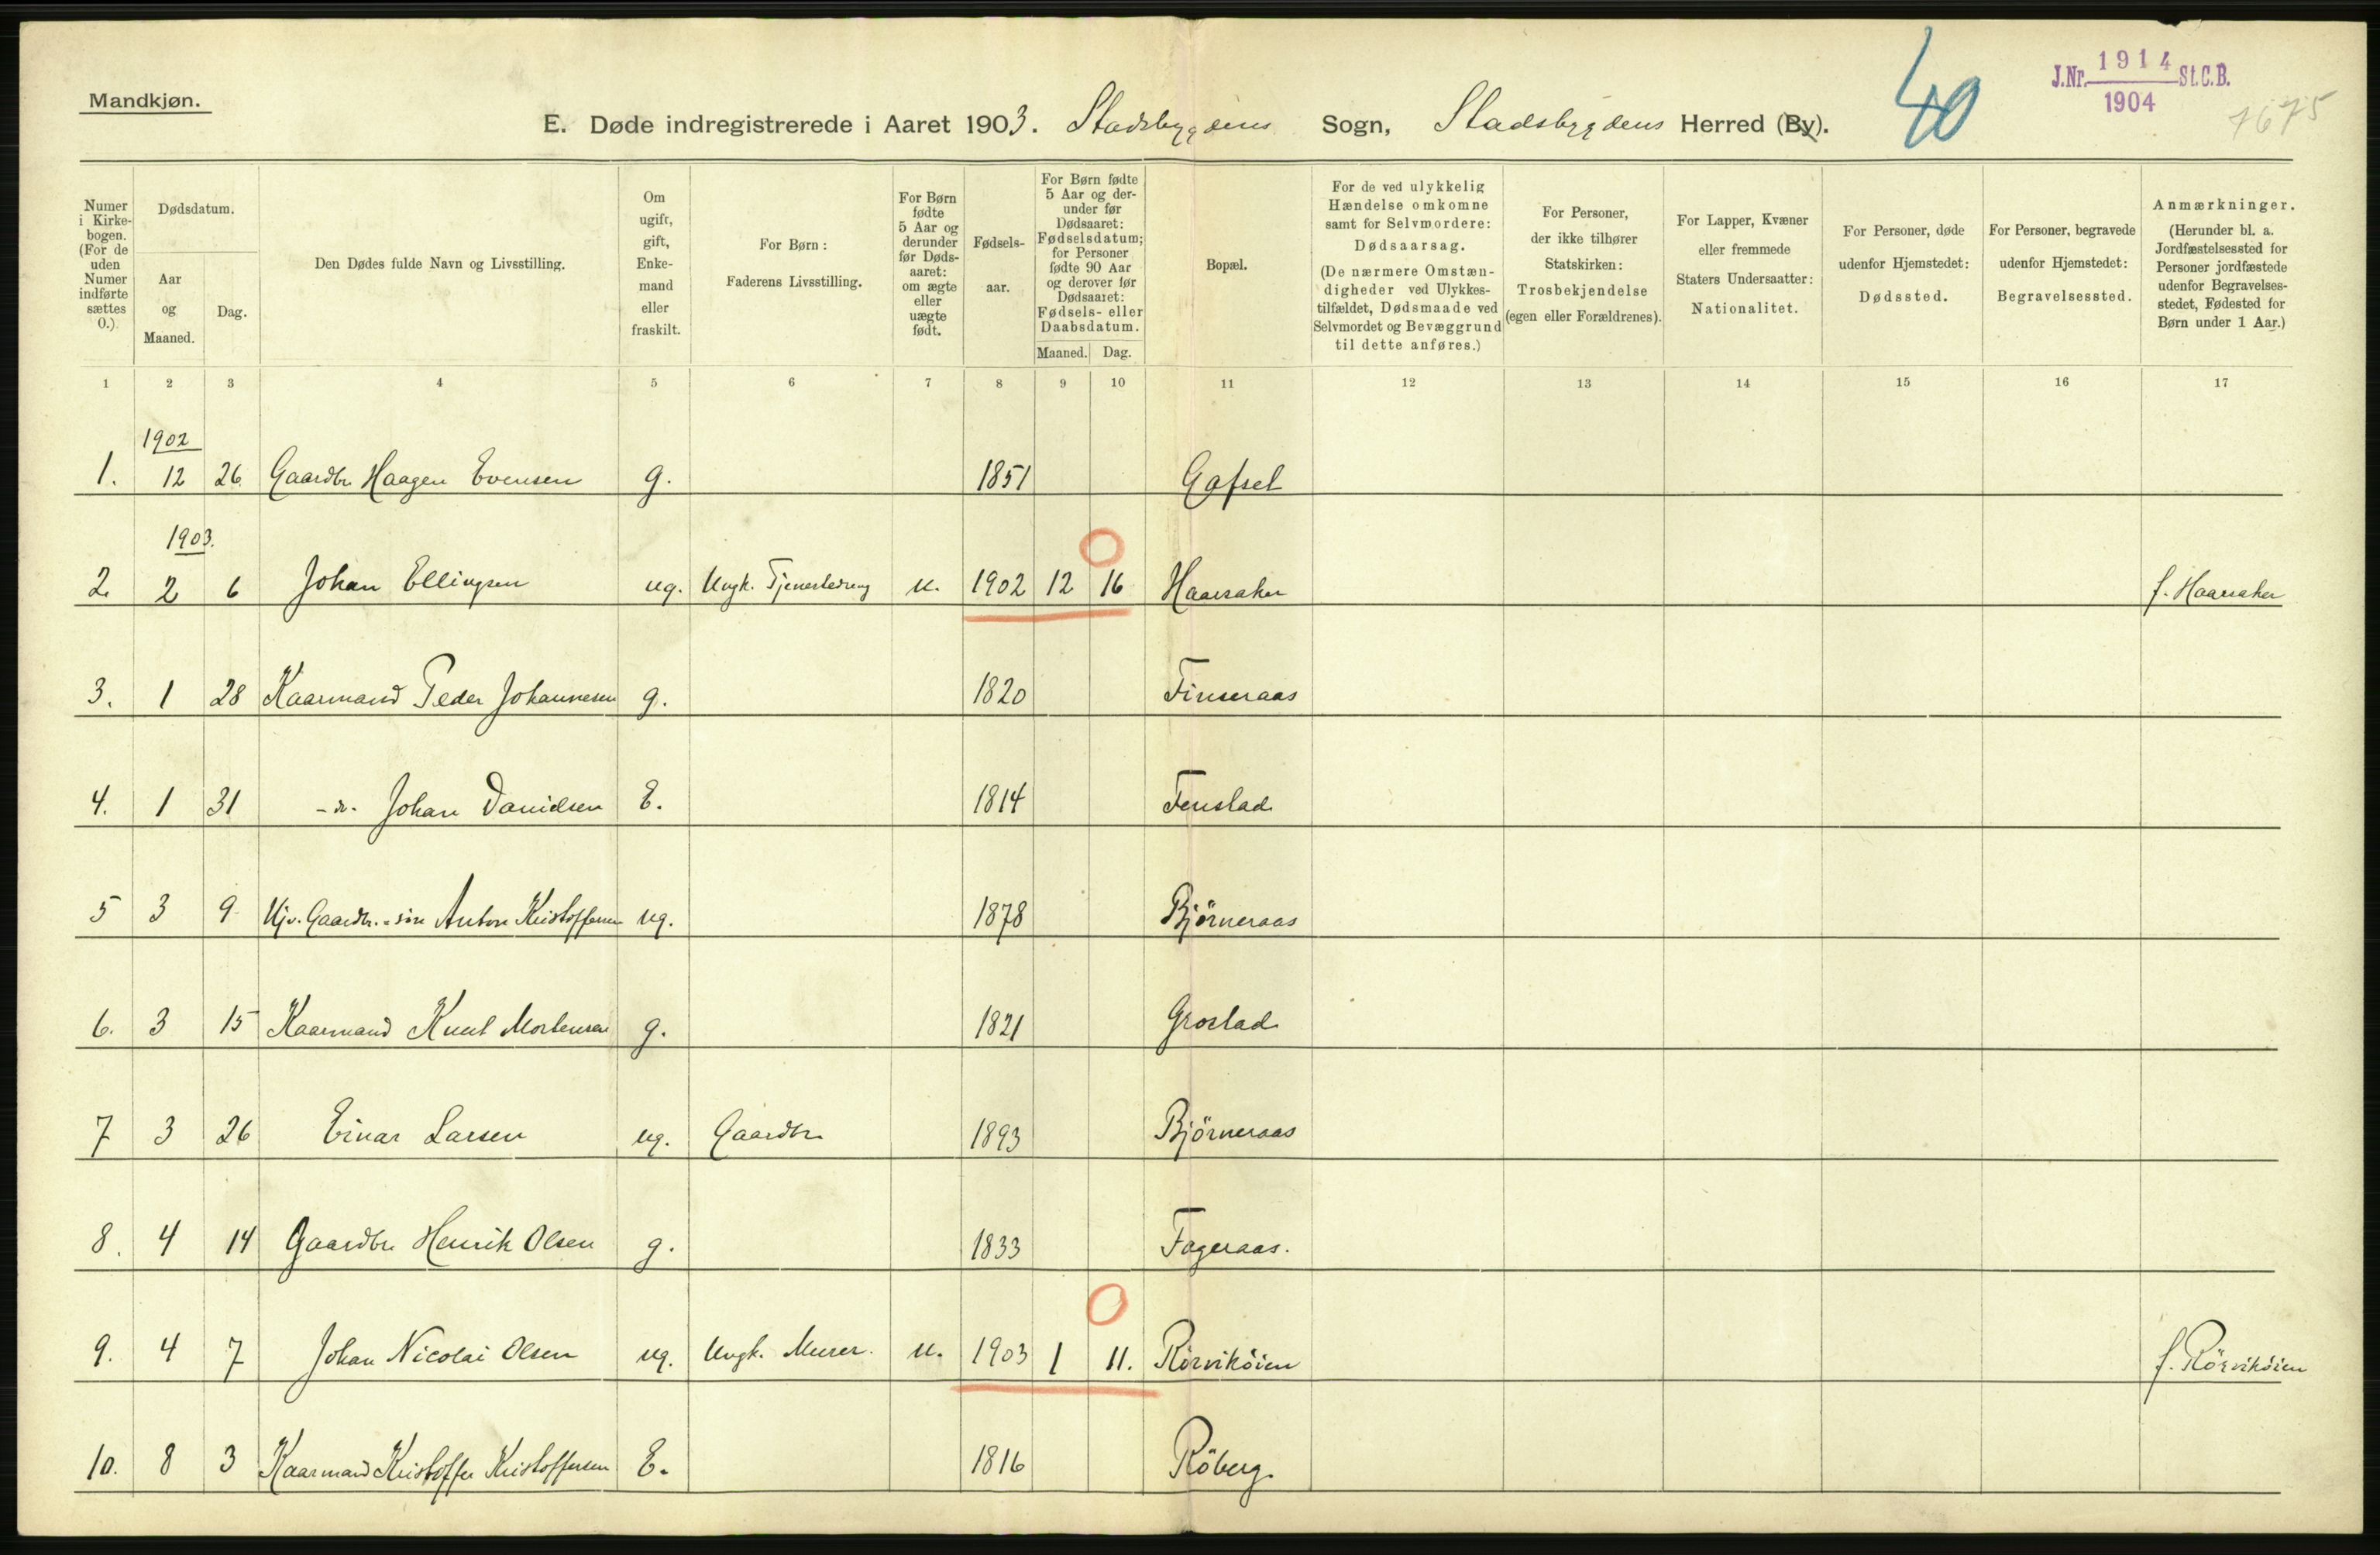 Mandkjøn.
E. Døde indregistrerede i Aaret 1903. Stadsbygdens Sogn, Stadsbygdens Herred (By).
40
J.Nr. 1914 St.C.B.
1904
7675
Numer i Kirkebogen. (For de uden Numer indførte sættes 0.)
Dødsdatum.
Aar og Maaned.
Dag.
Den Dødes fulde Navn og Livsstilling.
Om ugift, gift, Enkemand eller fraskilt.
For Børn: Faderens Livsstilling.
For Børn fødte 5 Aar og derunder før Dødsaaret: om ægte eller uægte født.
Fødselsaar.
For Børn fødte 5 Aar og derunder før Dødsaaret: Fødselsdatum; for Personer fødte 90 Aar og derover før Dødsaaret: Fødsels- eller Daabsdatum.
Maaned. Dag.
Bopæl.
For de ved ulykkelig Hændelse omkomne samt for Selvmordere: Dødsaarsag. (De nærmere Omstændigheder ved Ulykkestilfældet, Dødsmaade ved Selvmordet og Bevæggrund til dette anføres.)
For Personer, der ikke tilhører Statskirken: Trosbekjendelse (egen eller Forældrenes).
For Lapper, Kvæner eller fremmede Staters Undersaatter: Nationalitet.
For Personer, døde udenfor Hjemstedet: Dødssted.
For Personer, begravede udenfor Hjemstedet: Begravelsessted.
Anmærkninger. (Herunder bl. a. Jordfæstelsessted for Personer jordfæstede udenfor Begravelsesstedet, Fødested for Børn under 1 Aar.)
1 2 3 4 5 6 7 8 9 10 11 12 13 14 15 16 17
1902
1. 12 26 Gaardbr. Haagen Evensen g. 1851 Gafsel
1903.
2. 2 6 Johan Ellingsen ug. Ungk. Tjenestedreng u. 1902 12 16 Haarsaker f. Haarsaker
3. 1 28 Kaarmand Peder Johannesen g. 1820 Finseraas
4. 1 31 -"- Johan Danidsen E. 1814 Fenstad
5 3 9 Gaardbr.-søn Anton Kristoffersen ug. 1878 Björneraas
6. 3 15 Kaarmand Knut Mortensen g. 1821 Grostad
7 3 26 Einar Larsen ug. Gaardbr. 1893 Björneraas
8. 4 14 Gaardbr Henrik Olsen g. 1833 Fageraas.
9. 4 7 Johan Nicolai Olsen ug. Ungk. Murer. u. 1903 1 11. Rörviköien f. Rörviköien
10. 8 3 Kaarmand Kristoffer Kristoffersen E. 1816 Röberg.